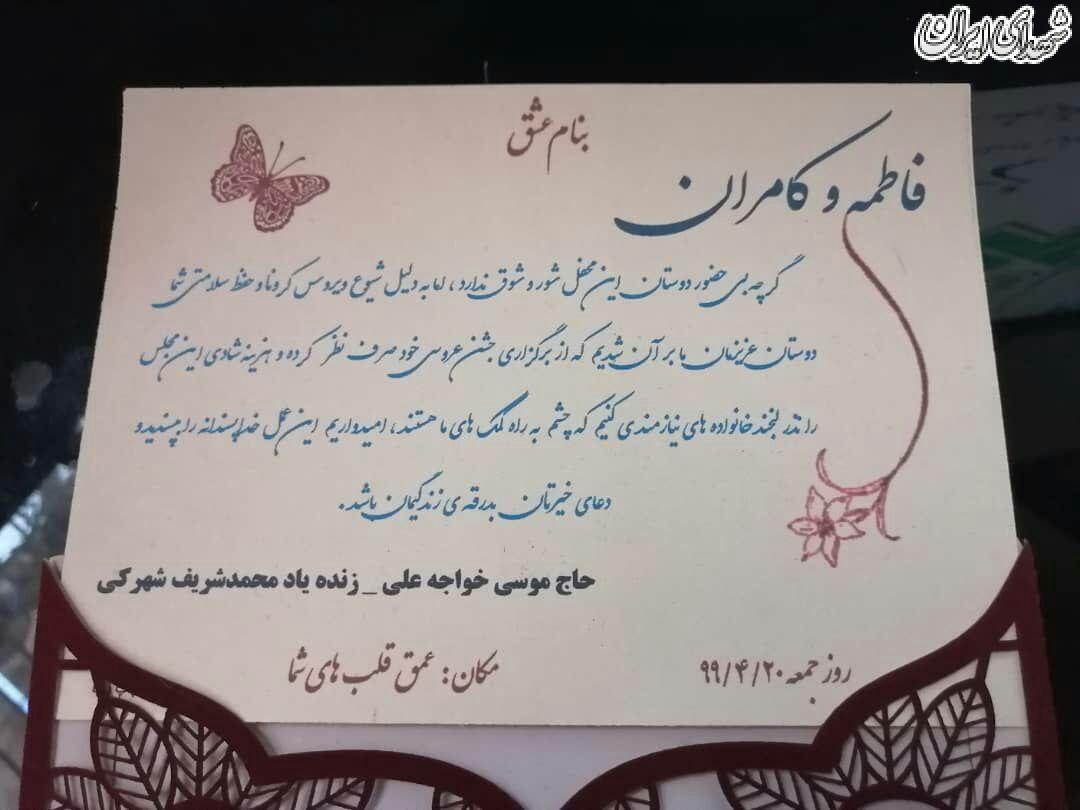 شهدای ایران
بنام عشق
فاطمه و کامران
گرچه بی حضور دوستان این محفل شور و شوق ندارد، اما به دلیل شیوع ویروس کرونا و حفظ سلامتی شما
دوستان عزیزمان ما بر آن شدیم که از برگزاری جشن عروسی خود صرف نظر کرده و هزینه شادی این مجلس
را نذر لبخند خانواده های نیازمندی کنیم که چشم به راه کمک های ما هستند، امیدواریم این عمل خداپسندانه را بپسندید و
دعای خیرتان بدرقه ی زندگیمان باشد.
حاج موسی خواجه علی _ زنده یاد محمدشریف شهرکی
روز جمعه ۹۹/۴/۲۰
مکان: عمق قلب های شما